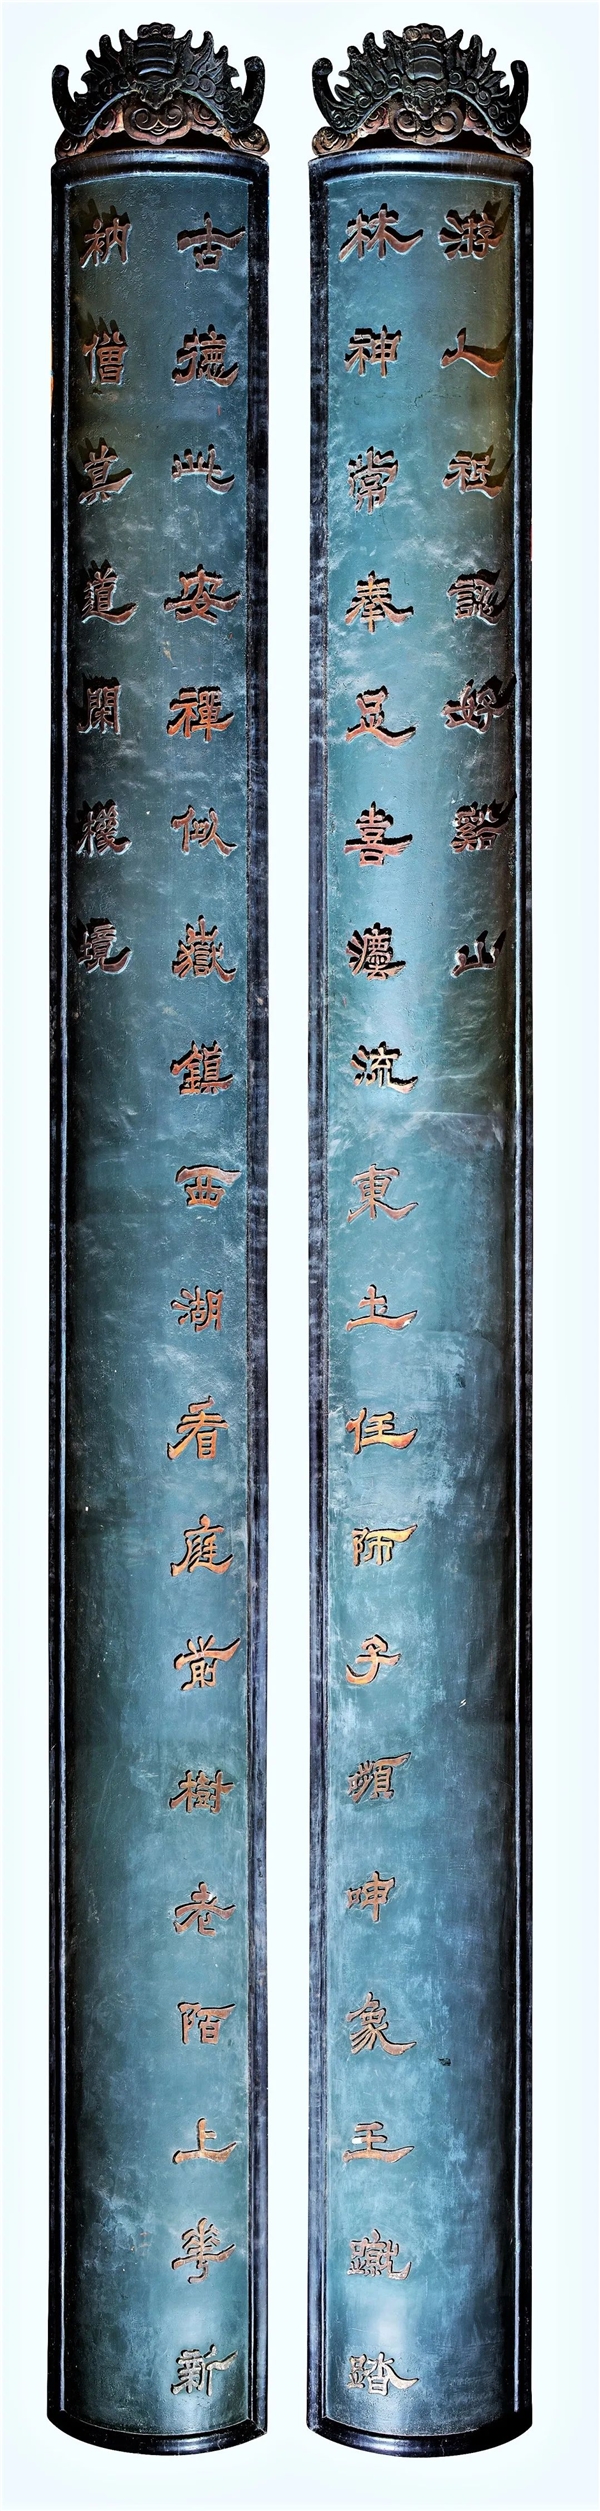 古德此安禪似嶽鎮西湖看庭前樹老陌上華新
衲僧莫道閑機境
林神常奉足喜灋流東土任師子頻呻象王蹴踏
游人祗認好谿山